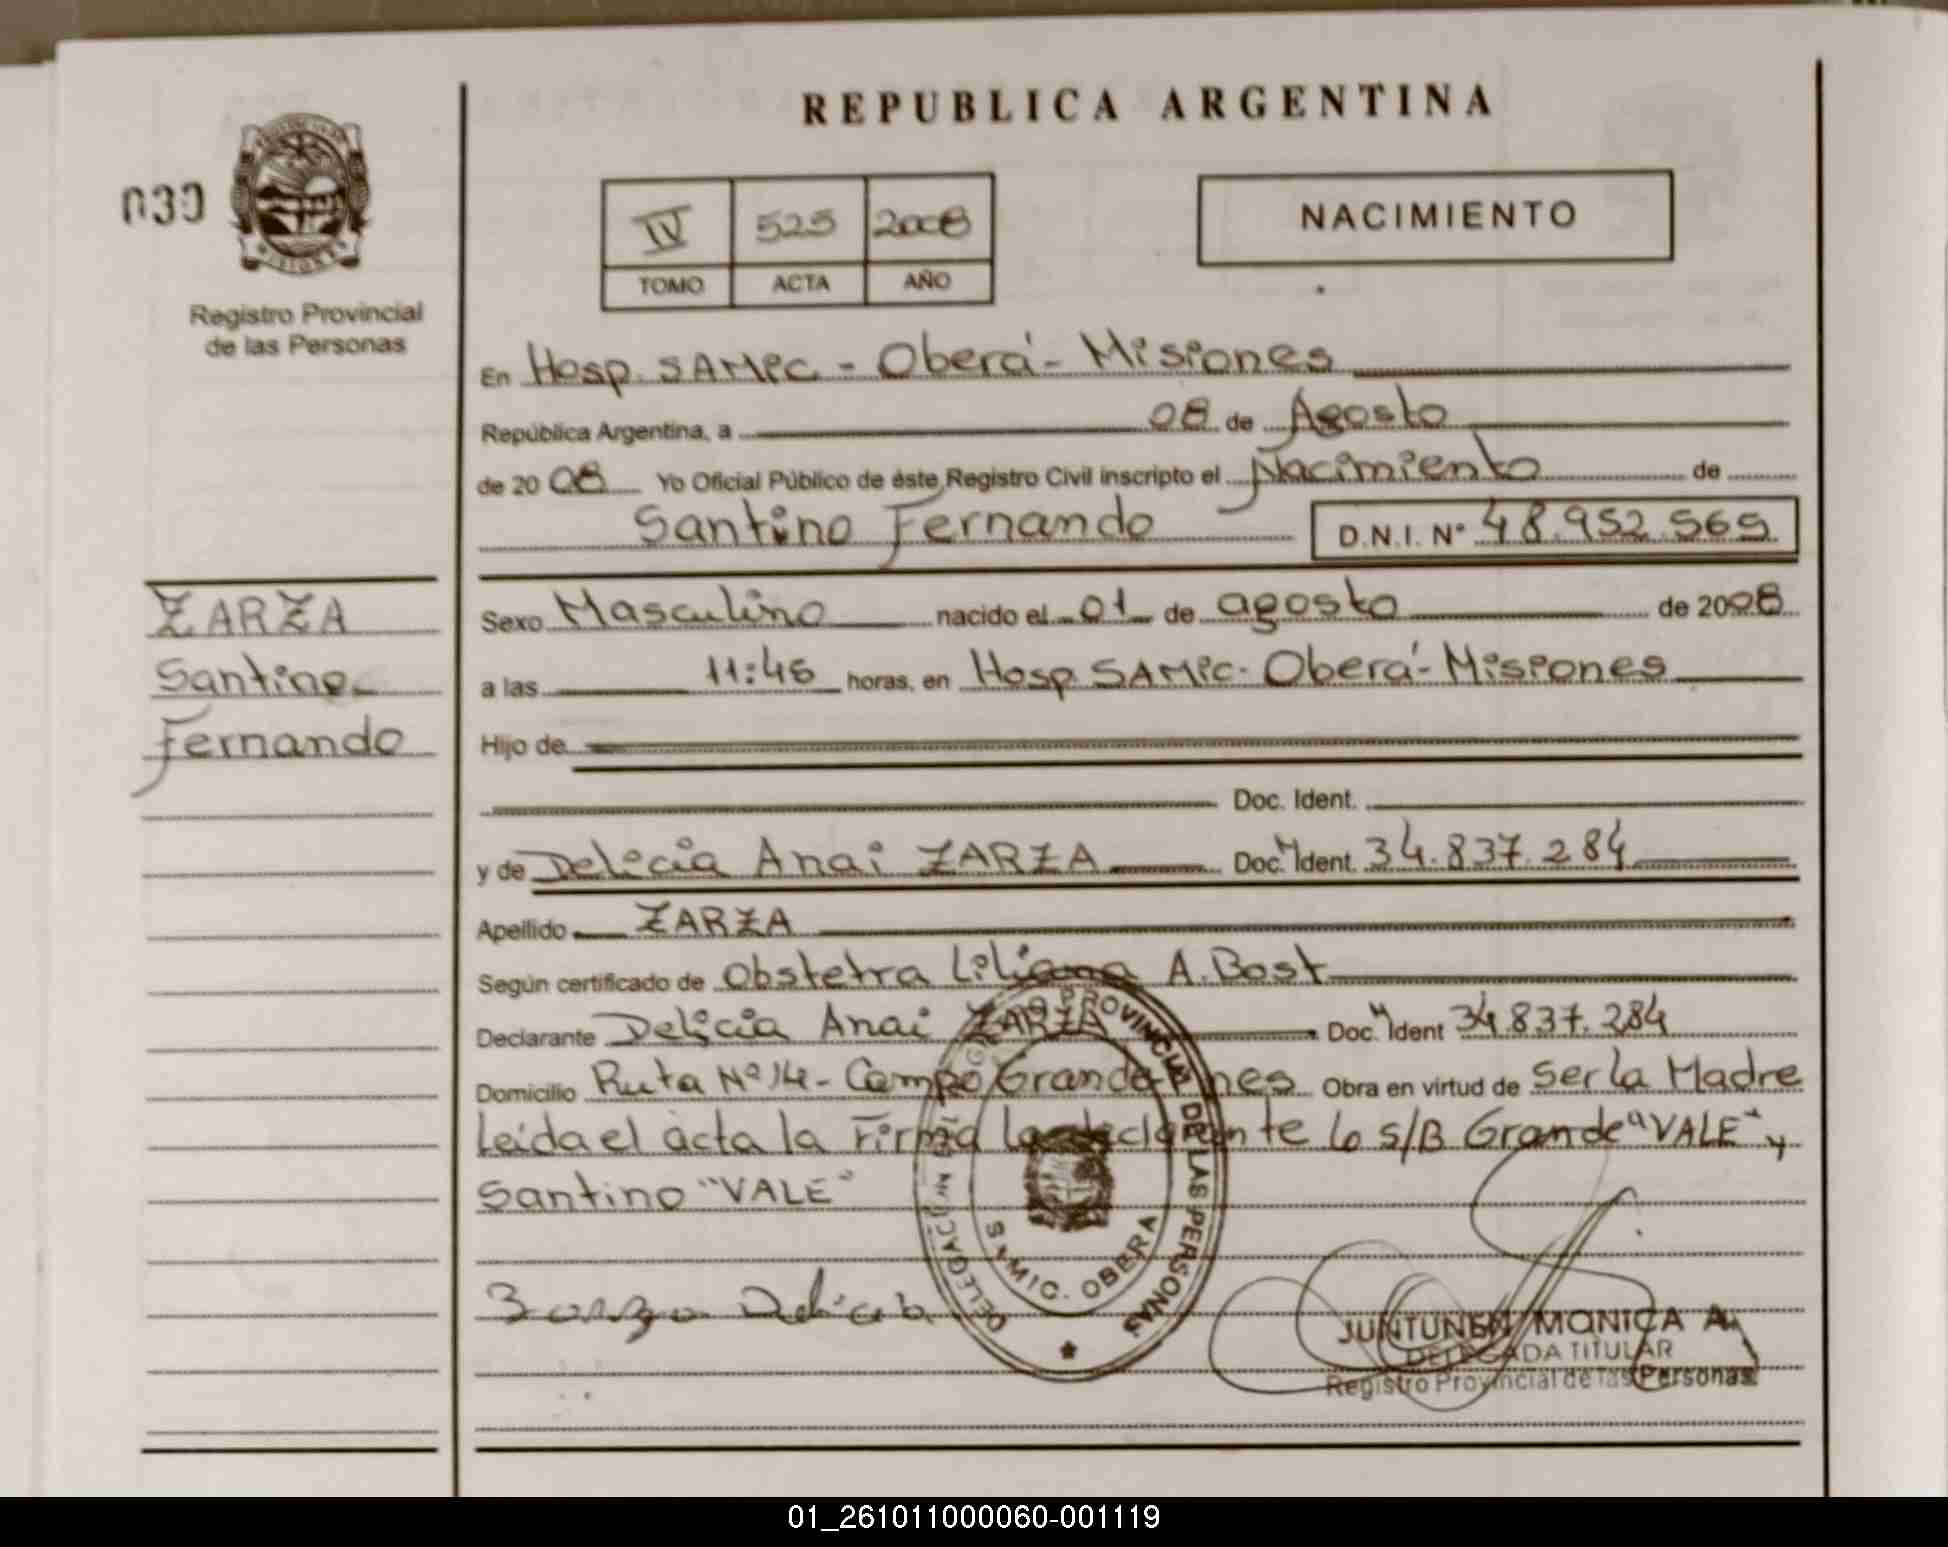 REPUBLICA ARGENTINA
030
IV 525 2008
TOMO ACTA AÑO
NACIMIENTO
Registro Provincial
de las Personas
En Hosp. SAMIC - Oberá - Misiones
República Argentina, a 08 de Agosto
de 2008 Yo Oficial Público de éste Registro Civil inscripto el Nacimiento de
Santino Fernando D.N.I. Nº 48.952.565
ZARZA
Santino
Fernando
Sexo Masculino nacido el 01 de agosto de 2008
a las 11:45 horas, en Hosp SAMIC - Oberá - Misiones
Hijo de
Doc. Ident.
y de Delicia Anai ZARZA Doc. Ident. 34.837.284
Apellido ZARZA
Según certificado de Obstetra Liliana A. Bost
Declarante Delicia Anai ZARZA Doc. Ident 34.837.284
Domicilio Ruta Nº 14 - Campo Grande - Mnes Obra en virtud de Ser la Madre
Leída el acta la Firma la declarante lo s/B Grande "VALE" y
Santino "VALE"
REGISTRO PROVINCIAL DE LAS PERSONAS
DELEGACIÓN
SAMIC. OBERA
Zarza Delicia
JUNTUNEN MONICA A.
DELEGADA TITULAR
Registro Provincial de las Personas
01_261011000060-001119